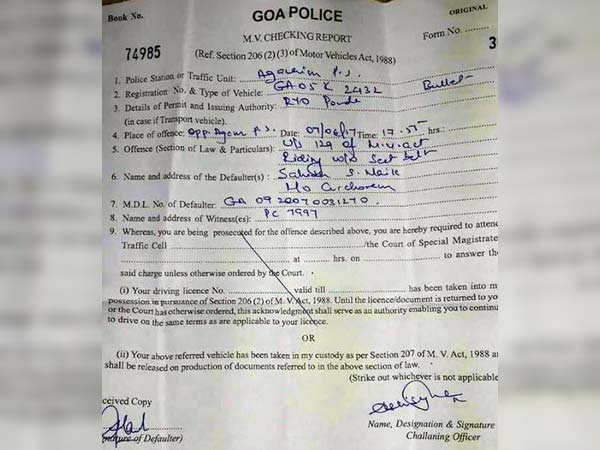 Book No.
GOA POLICE
ORIGINAL
M.V. CHECKING REPORT
Form No.
74985
(Ref. Section 206 (2) (3) of Motor Vehicles Act, 1988)
3
1. Police Station or Traffic Unit: Agacaim P.S.
2. Registration No. & Type of Vehicle: GA05K 2432 Bullet
3. Details of Permit and Issuing Authority: RTO Ponda
(in case if Transport vehicle).
4. Place of offence: Opp. P.S. Date: 07/06/17 Time: 17.55 hrs.:
5. Offence (Section of Law & Particulars): U/s 129 of M.V. act
Riding w/o Seat belt
6. Name and address of the Defaulter(s): S. Naik
Curchorem
7. M.D.L. No. of Defaulter: GA 09 20070031270
8. Name and address of Witness(es): PC 7997
9. Whereas, you are being prosecuted for the offence described above, you are hereby required to attend
Traffic Cell /the Court of Special Magistrate
at hrs. on to answer the
said charge unless otherwise ordered by the Court.
(i) Your driving licence No. valid till has been taken into m
possession in pursuance of Section 206 (2) of M. V. Act, 1988. Until the licence/document is returned to yo
or the Court has otherwise ordered, this acknowledgment shall serve as an authority enabling you to continu
to drive on the same terms as are applicable to your licence.
OR
(ii) Your above referred vehicle has been taken in my custody as per Section 207 of M. V. Act, 1988 a
shall be released on production of documents referred to in the above section of law.
(Strike out whichever is not applicable
ceived Copy
nature of Defaulter)
Name, Designation & Signature
Challaning Officer